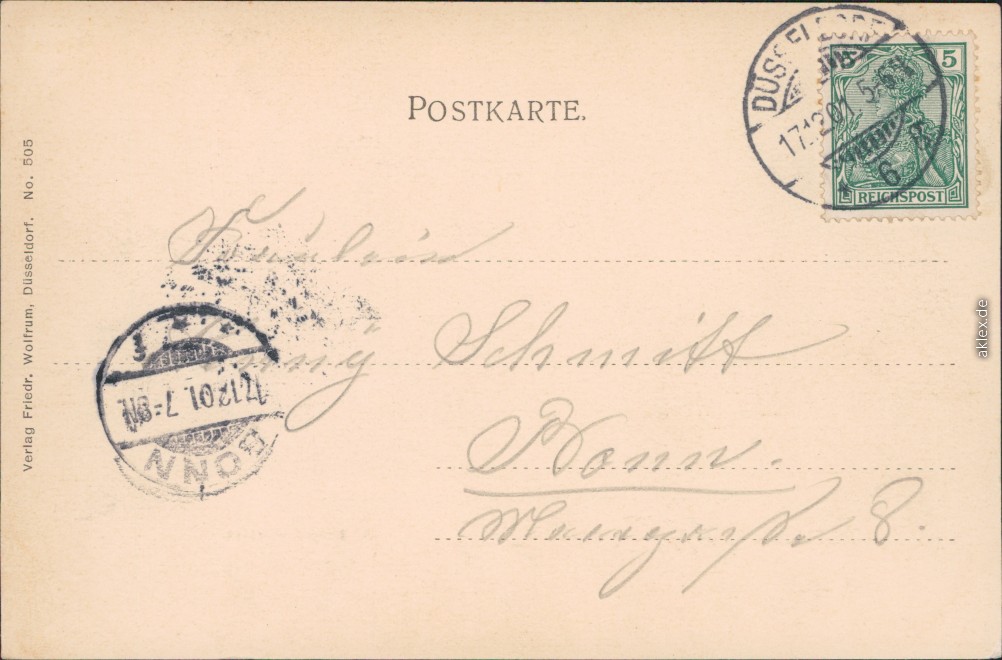 POSTKARTE.
DÜSSELDORF
17.12.01. 5-6N.
* 6 g
5
REICHSPOST
Fräulein
Schmitt
Bonn.
8.
BONN
17.12.01. 7-8N.
* *
Verlag Friedr. Wolfrum, Düsseldorf. No. 505
aklex.de